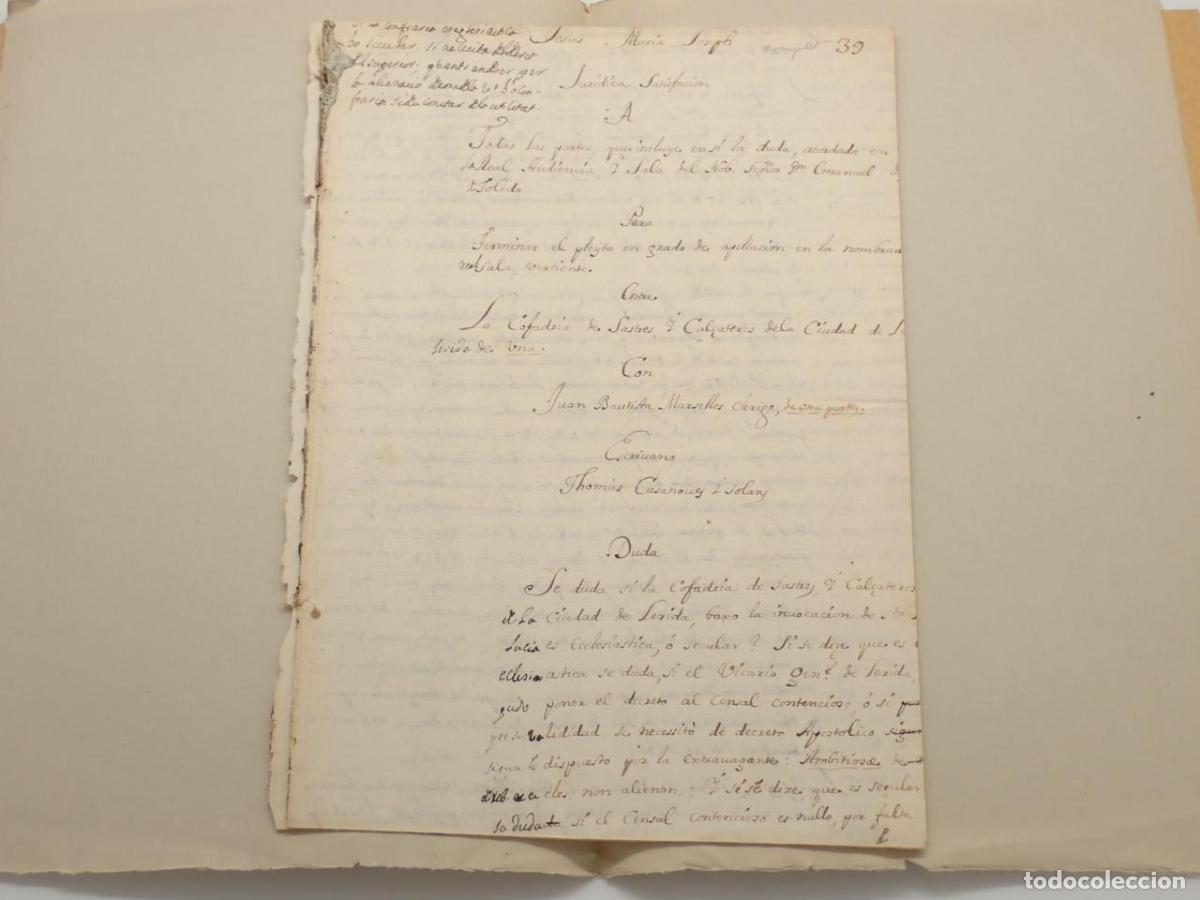 Jesus Maria Joseph
complet 39
Juridica Satisfacion
A
Todas las partes, que incluye en si la duda, acordada en
la Real Audiencia, Y Sala del Nob. Señor Dn Emanuel d
e Toledo
Para
Terminar el pleyto en grado de apellacion, en la nombra
real Sala, vertiente.
Entre
La Cofadria de Sastres Y Calçateros de la Ciudad de Le
rida de Una.
Con
Juan Bautista Marselles Clerigo, de otra parte.
Escrivano
Thomas Casanoves Y Solans
Duda
Se duda si la Cofadria de Sastres, Y Calçateros
de la Ciudad de Lerida, baxo la invocacion de Sta
Lucia es Ecclesiastica, ó secular? Si se dize que es
ecclesiastica se duda, si el Vicario Genl. de Lerida,
pudo poner el decreto al Censal contencioso, ó si
por su valididad se necessitò de decreto Apostolico
segun lo dispuesto por la extravagante: Ambitiosæ de
reb. eccles. non alienan.; Y si se dize que es secular
se duda si el Censal contencioso es nullo, por falta
todocoleccion